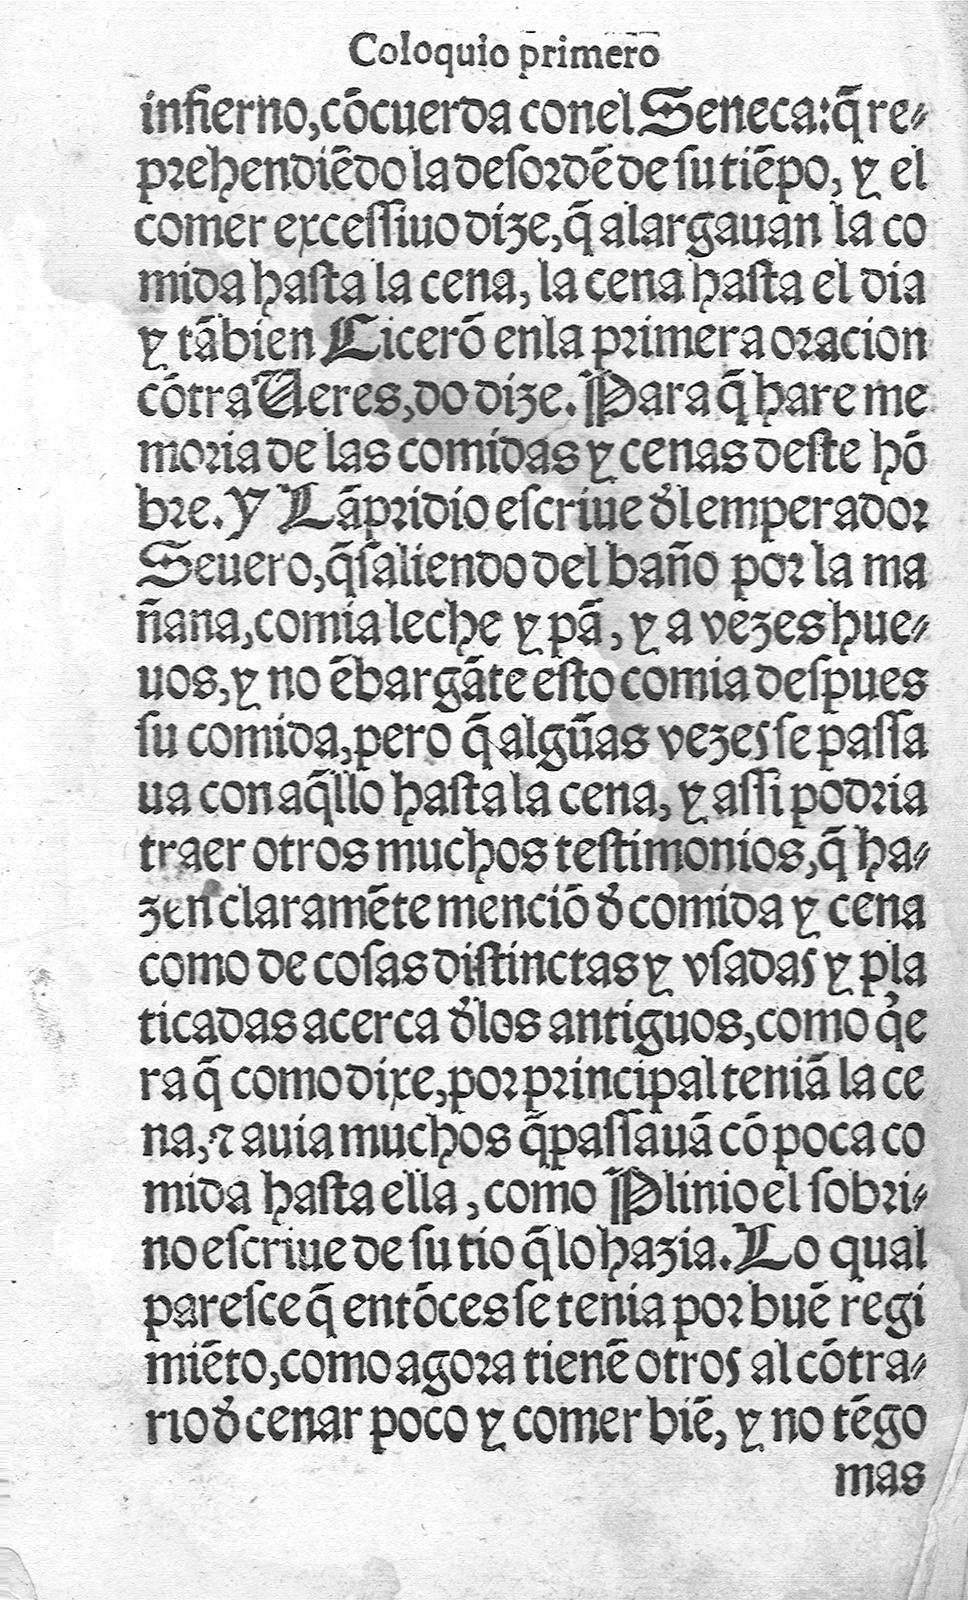 Coloquio p̄rimero
infierno,cōcuerda conel Seneca:q̄ re⸗
prehendiēdo la desordē de su tiēpo, y el
comer excessiuo dize,q̄ alargauan la co
mida hasta la cena, la cena hasta el dia
y tābien Cicerō enla primera oracion
cōtra Ueres,do dize. Para q̄ hare me
moria de las comidas y cenas deste hō
bre. Y Lāpridio escriue d̄l emperador
Seuero,q̄ saliendo del baño por la ma
ñana,comia leche y pā, y a vezes hue⸗
uos,y no ēbargāte esto comia despues
su comida,pero q̄ algūas vezes se passa
ua con aq̄llo hasta la cena, y assi podria
traer otros muchos testimonios,q̄ ha⸗
zen claramēte menciō d̄ comida y cena
como de cosas distinctas y vsadas y pla
ticadas acerca d̄los antiguos,como q̇e
ra q̄ como dixe,por principal teniā la ce
na,⁊ auia muchos q̄ passauā cō poca co
mida hasta ella, como Plinio el sobri⸗
no escriue de su tio q̄ lo hazia. Lo qual
paresce q̄ entōces se tenia por buē regi
miēto,como agora tienē otros al cōtra⸗
rio d̄ cenar poco y comer biē, y no tēgo
mas